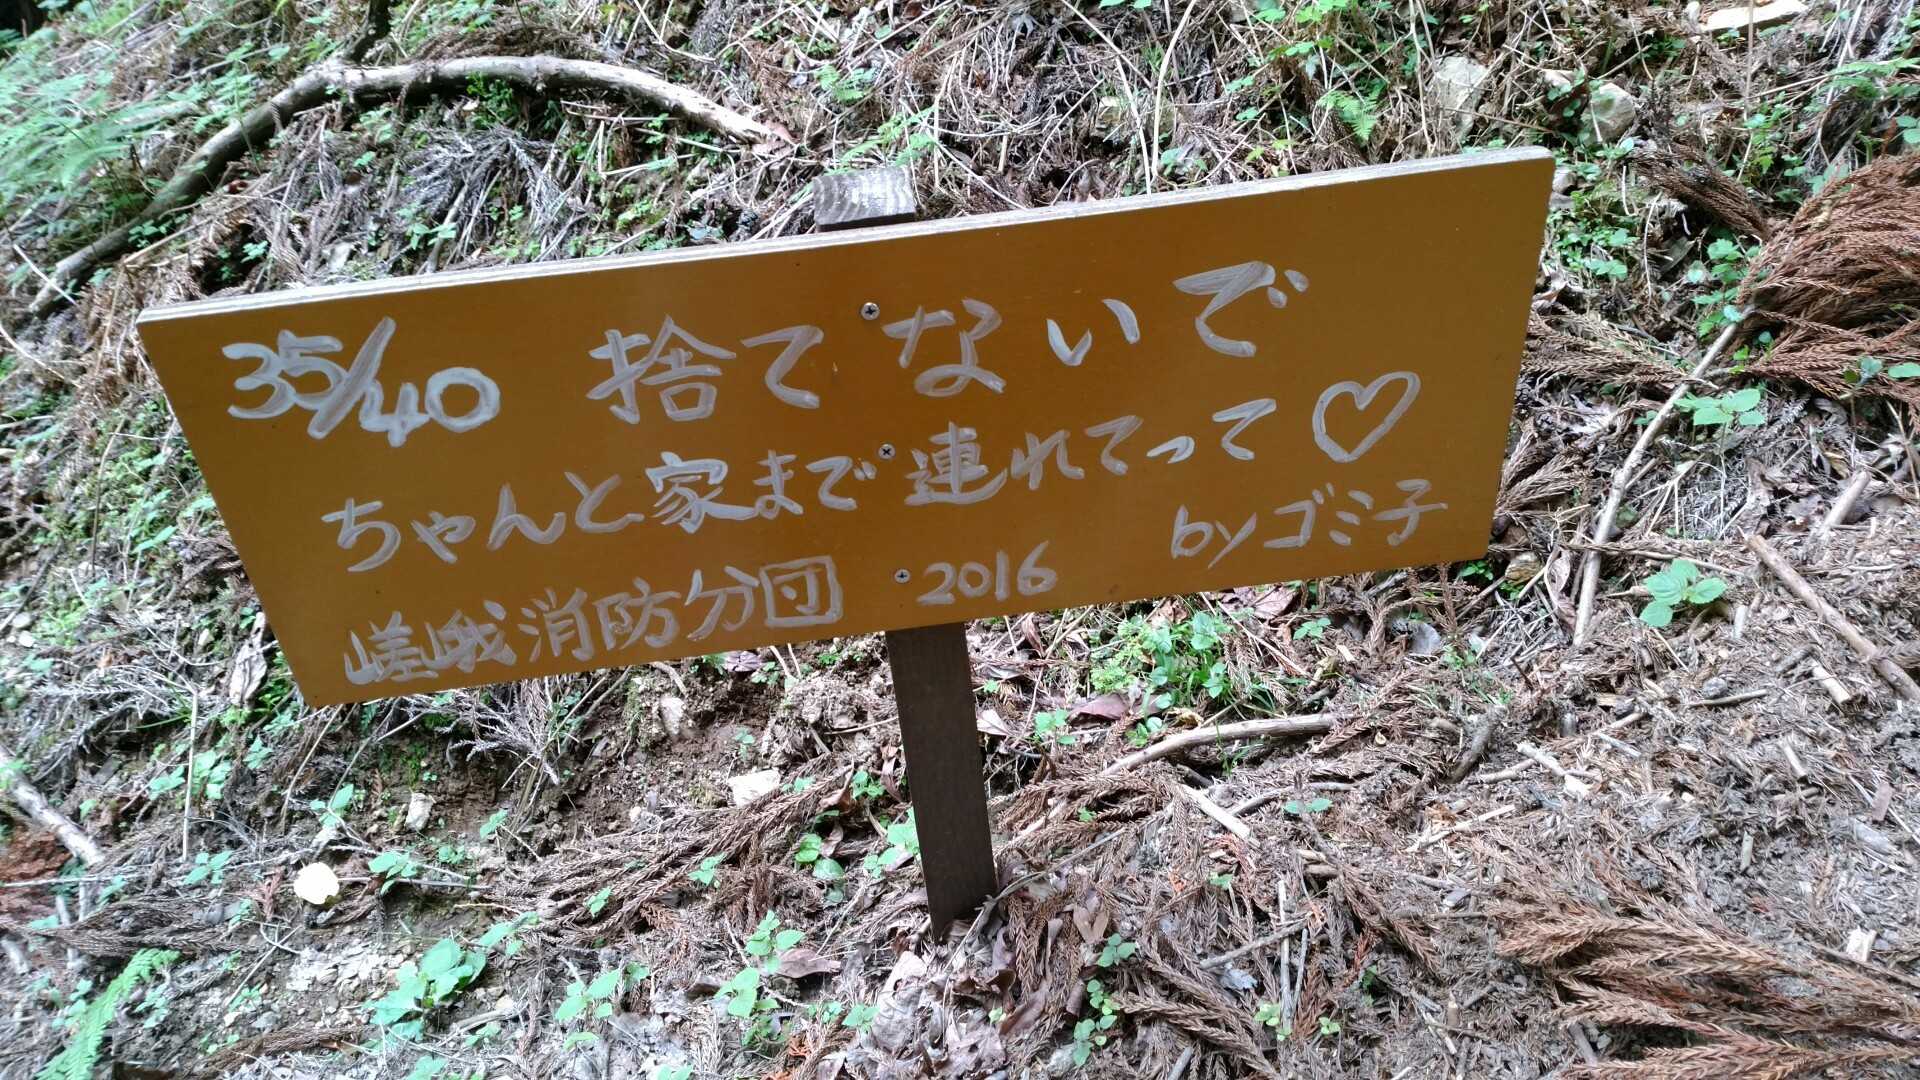 35/40 捨てないで
ちゃんと家まで連れてって♡
byゴミ子
嵯峨消防分団 2016